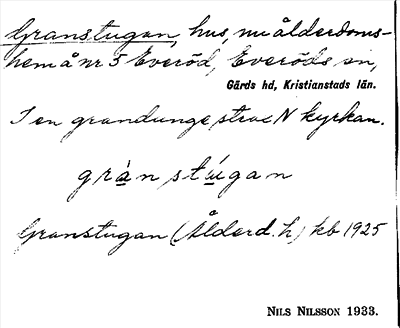 Granstugan, hus, nu ålderdoms-
hem å nr 5 Everöd, Everöds sn,
Gärds hd, Kristianstads län.
I en grandunge strax N kyrkan.
grà̱n stú̱gan
Granstugan (Ålderd.h) kb 1925
NILS NILSSON 1933.